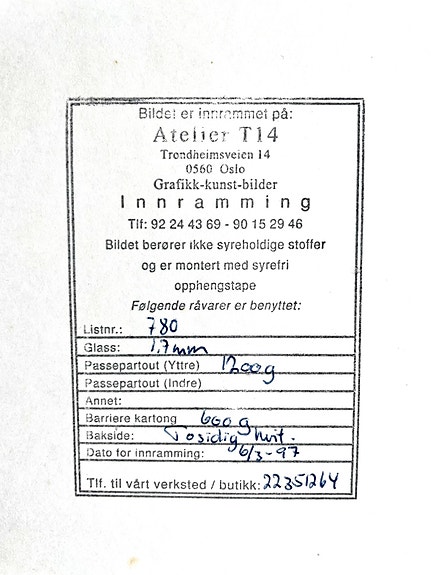 Bildet er innrammet på:
Atelier T14
Trondheimsveien 14
0560 Oslo
Grafikk-kunst-bilder
Innramming
Tlf: 92 24 43 69 - 90 15 29 46
Bildet berører ikke syreholdige stoffer
og er montert med syrefri
opphengstape
Følgende råvarer er benyttet:
Listnr.: 780
Glass: 1,7 mm
Passepartout (Yttre) 1200g
Passepartout (Indre)
Annet:
Barriere kartong 600 g
Bakside: Tosidig hvit.
Dato for innramming: 6/3-97
Tlf. til vårt verksted / butikk: 22351264